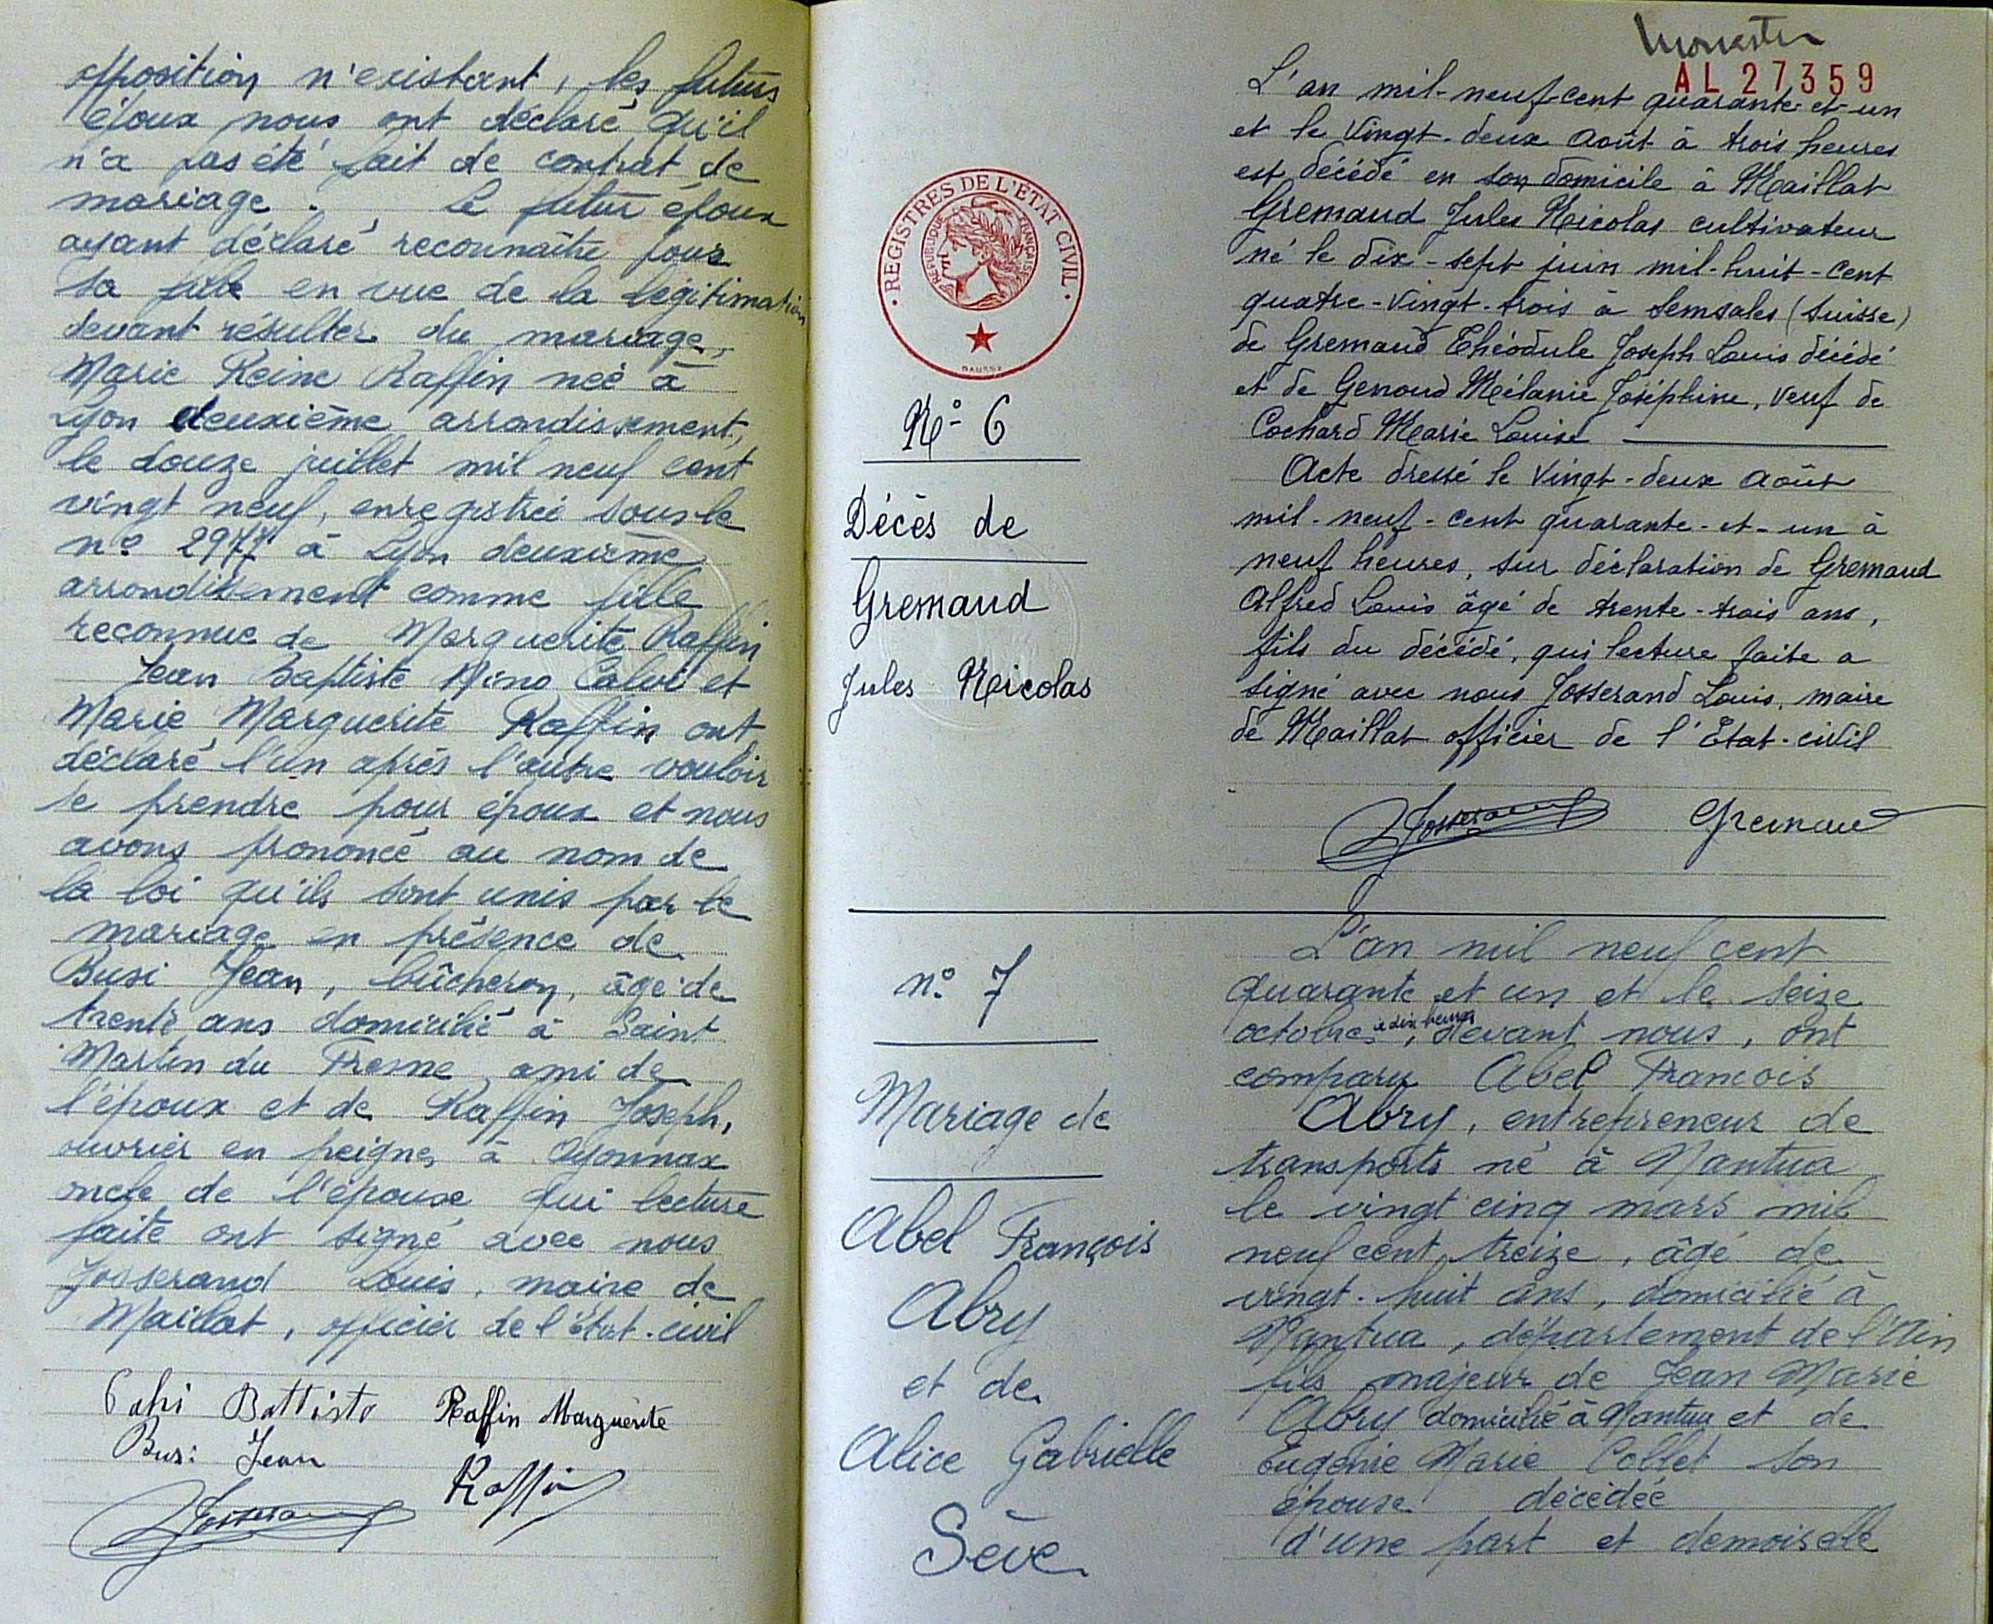 opposition n'existant, les futurs
époux nous ont déclaré qu'il
n'a pas été fait de contrat de
mariage. le futur époux
ayant déclaré reconnaître pour
sa fille en vue de la légitimation
devant résulter du mariage,
Marie Reine Raffin née à
Lyon deuxième arrondissement,
le douze juillet mil neuf cent
vingt neuf, enregistrée sous le
n° 2977 à Lyon deuxième
arrondissement comme fille
reconnue de Marguerite Raffin
Jean Baptiste Nino Calvi et
Marie Marguerite Raffin ont
déclaré l'un après l'autre vouloir
se prendre pour époux et nous
avons prononcé au nom de
la loi qu'ils sont unis par le
mariage en présence de
Busi Jean, bûcheron, âgé de
trente ans domicilié à Saint
Martin du Fresne ami de
l'époux et de Raffin Joseph,
ouvrier en peignes à Oyonnax
oncle de l'épouse qui lecture
faite ont signé avec nous
Josserand Louis, maire de
Maillat, officier de l'État-civil
Battista Raffin Marguerite
Busi Jean Raffin
Josserand
REGISTRES DE L'ÉTAT CIVIL
RÉPUBLIQUE FRANÇAISE
N° 6
Décès de
Gremaud
Jules Nicolas
AL 27359
L'an mil-neuf-cent quarante-et-un
et le vingt-deux août à trois heures
est décédé en son domicile à Maillat
Gremaud Jules Nicolas cultivateur
né le dix-sept juin mil-huit-cent
quatre-vingt-trois à Semsales (Suisse)
de Gremaud Théodule Joseph Louis décédé
et de Genoud Mélanie Joséphine, veuf de
Cochard Marie Louise
Acte dressé le vingt-deux août
mil-neuf-cent quarante-et-un à
neuf heures, sur déclaration de Gremaud
Alfred Louis âgé de trente-trois ans,
fils du décédé, qui lecture faite a
signé avec nous Josserand Louis, maire
de Maillat officier de l'État-civil
Josserand Gremaud
n° 7
Mariage de
Abel François
Abry
et de
Alice Gabrielle
Sève
L'an mil neuf cent
quarante et un et le seize
octobre à dix heures, devant nous, ont
comparu Abel François
Abry, entrepreneur de
transports né à Nantua
le vingt cinq mars mil
neuf cent treize, âgé de
vingt-huit ans, domicilié à
Nantua, département de l'Ain
fils majeur de Jean Marie
Abry domicilié à Nantua et de
Eugénie Marie Collet son
épouse décédée
d'une part et demoiselle